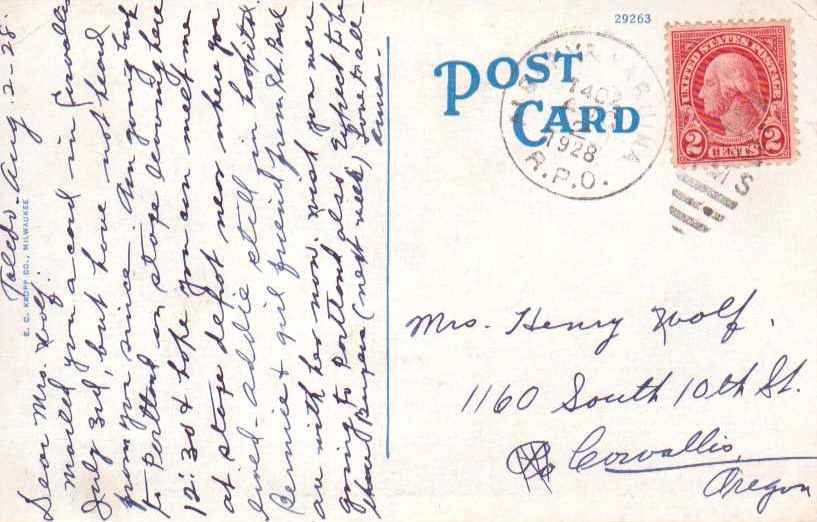 Toledo - Aug. 2 - 28.
Dear Mrs. Wolf:
Mailed you a card in Corvallis
July 3rd, but have not heard
from you since. Am going back
to Portland on stage leaving here
12:30 & hope you can meet me
at stage depot near where you
lived - Addie still in hospital.
Bernice & girl friend from Portland
are with her now. Wish you were
going to Portland also. Expect to be
(next week) Love to all -
Anna -
E. C. KROPP CO., MILWAUKEE
29263
POST
CARD
1928
R.P.O.
RMS
UNITED STATES POSTAGE
2 CENTS 2
Mrs. Henry Wolf.
1160 South 10th St.
Corvallis,
Oregon